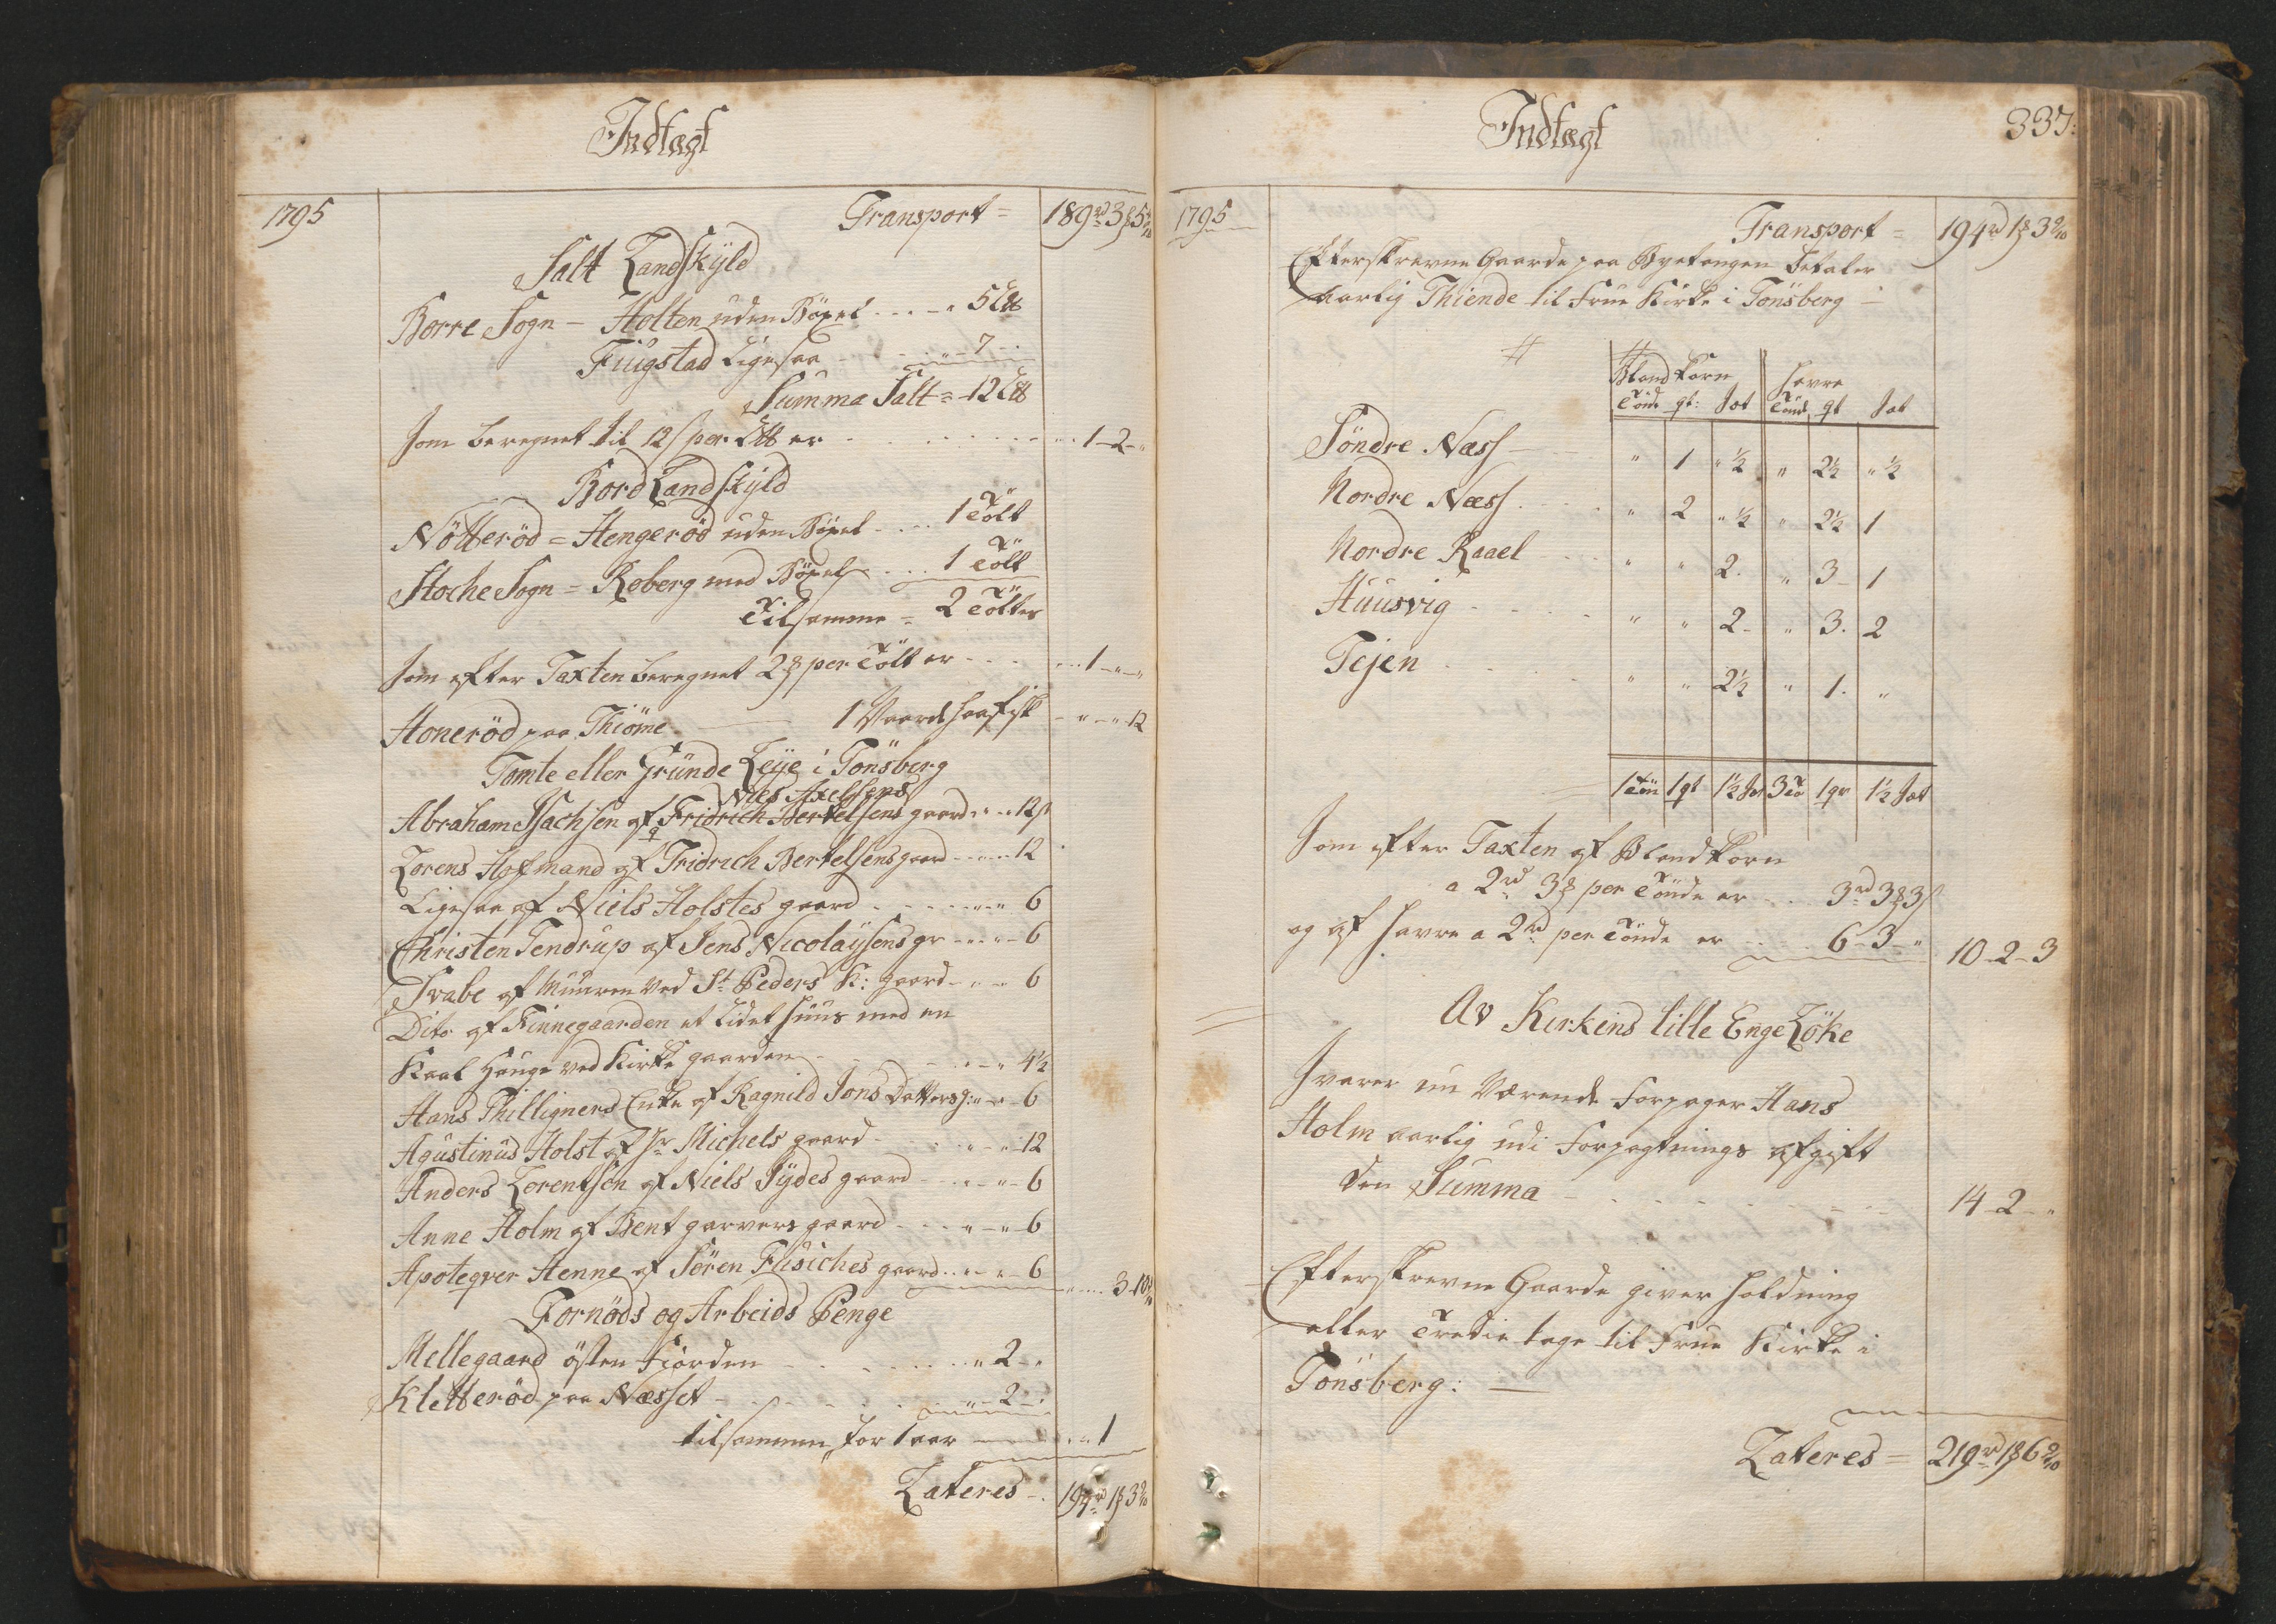 Indtægt
1795
Transport = 189 rd 3 ƶ 5 2/10
Salt Landskyld
Borre Sogn - Holten uden Böxel - - - - 5 L℔
Fuugstad Ligesaa - - - 7 - -
Summa Salt = 12 L℔
som beregnet til 12 s per L℔ er - - - 1-2-"
Bord Landskyld
Nötteröd = Hengeröd uden Böxel - - - 1 Tölt
Stoche Sogn = Roberg med Böxel - - - 1 Tölt
Tilsamme = 2 Tölter
som efter Taxten beregnet 2 ƶ per Tölt er - - - 1-"-"
Honeröd paa Thiöme - 1 Vaard Haafisk - "-"-12
Tomte eller Grunde Leÿe i Tönsberg
Niels Axelsens
Abraham Isachsen af Fridrich Bertelsens gaard " - " - 12 s
Lorens Hofmand af Fridrich Bertelsens gaard - - - 12
Ligesaa af Niels Holstes gaard - - - " - " - 6
Christen Tendrup af Jens Nicolaÿsens gr - - " - 6
Svabe af Muuren ved St Peders K: gaard - " - " 6
Dito af Finnegaarden et Lidet Huus med en
Kaal Hauge ved Kirke gaarden - - - " - " 4½
Hans Thilligners Enke af Ragnild Jons Datters g: " - " - 6
Agustinus Holst af Sr Michels gaard - - " - " 12
Anders Lorentsen af Niels Sÿdes gaard - - " - " - 6
Anne Holm af Bent garvers gaard - - " - " - 6
Apoteqver Henne af Sören Fusiches gaard - - " - 6 " - 3-10½
Fornöds og Arbeids Penge
Mellegaard östen Fiorden - - - " 2 - "
Kletteröd paa Næsset - - - " - 2 - "
tilsammen for 1 aar - - - " 1
Lateres - 194 rd 1 ƶ 3 2/10
Indtægt
337:
1795
Transport = 194 rd 1 ƶ 3 2/10
Efterskrevne Gaarde paa Byetangen Betaler
aarlig Thiende til Frue Kirke i Tönsberg -
Bland korn Havre
Tönde qt: Sæt Tönd qt Sæt
Söndre Næss - " 1 " ½ " 2½ " ½
Nordre Næss - " 2 " ½ " 2½ 1
Nordre Raael - " " 2. " 3- 1
Huusvig - " " 2- " 3. 2
Tejen - " " 2½ " 1. "
1 Tön 1 qt 1½ Sæt 3 Tö 1 qr 1½ Sæt
Som efter Taxten af Blandkorn
a 2 rd 3 ƶ per Tönde er - - 3 rd 3 ƶ 3 s
og af Havre a 2 rd per Tönde er - - 6-3-" 10-2-3
Av Kirkens lille Enge Löke
Svarer nu Værende Forpagter Hans
Holm aarlig udi Forpagtnings afgift
den Summa - - - 14-2-"
Efterskrevne Gaarde giver Holdning
eller Tredie tage til Frue Kirke i
Tönsberg: -
Lateres = 219 rd 1 ƶ 6 2/10